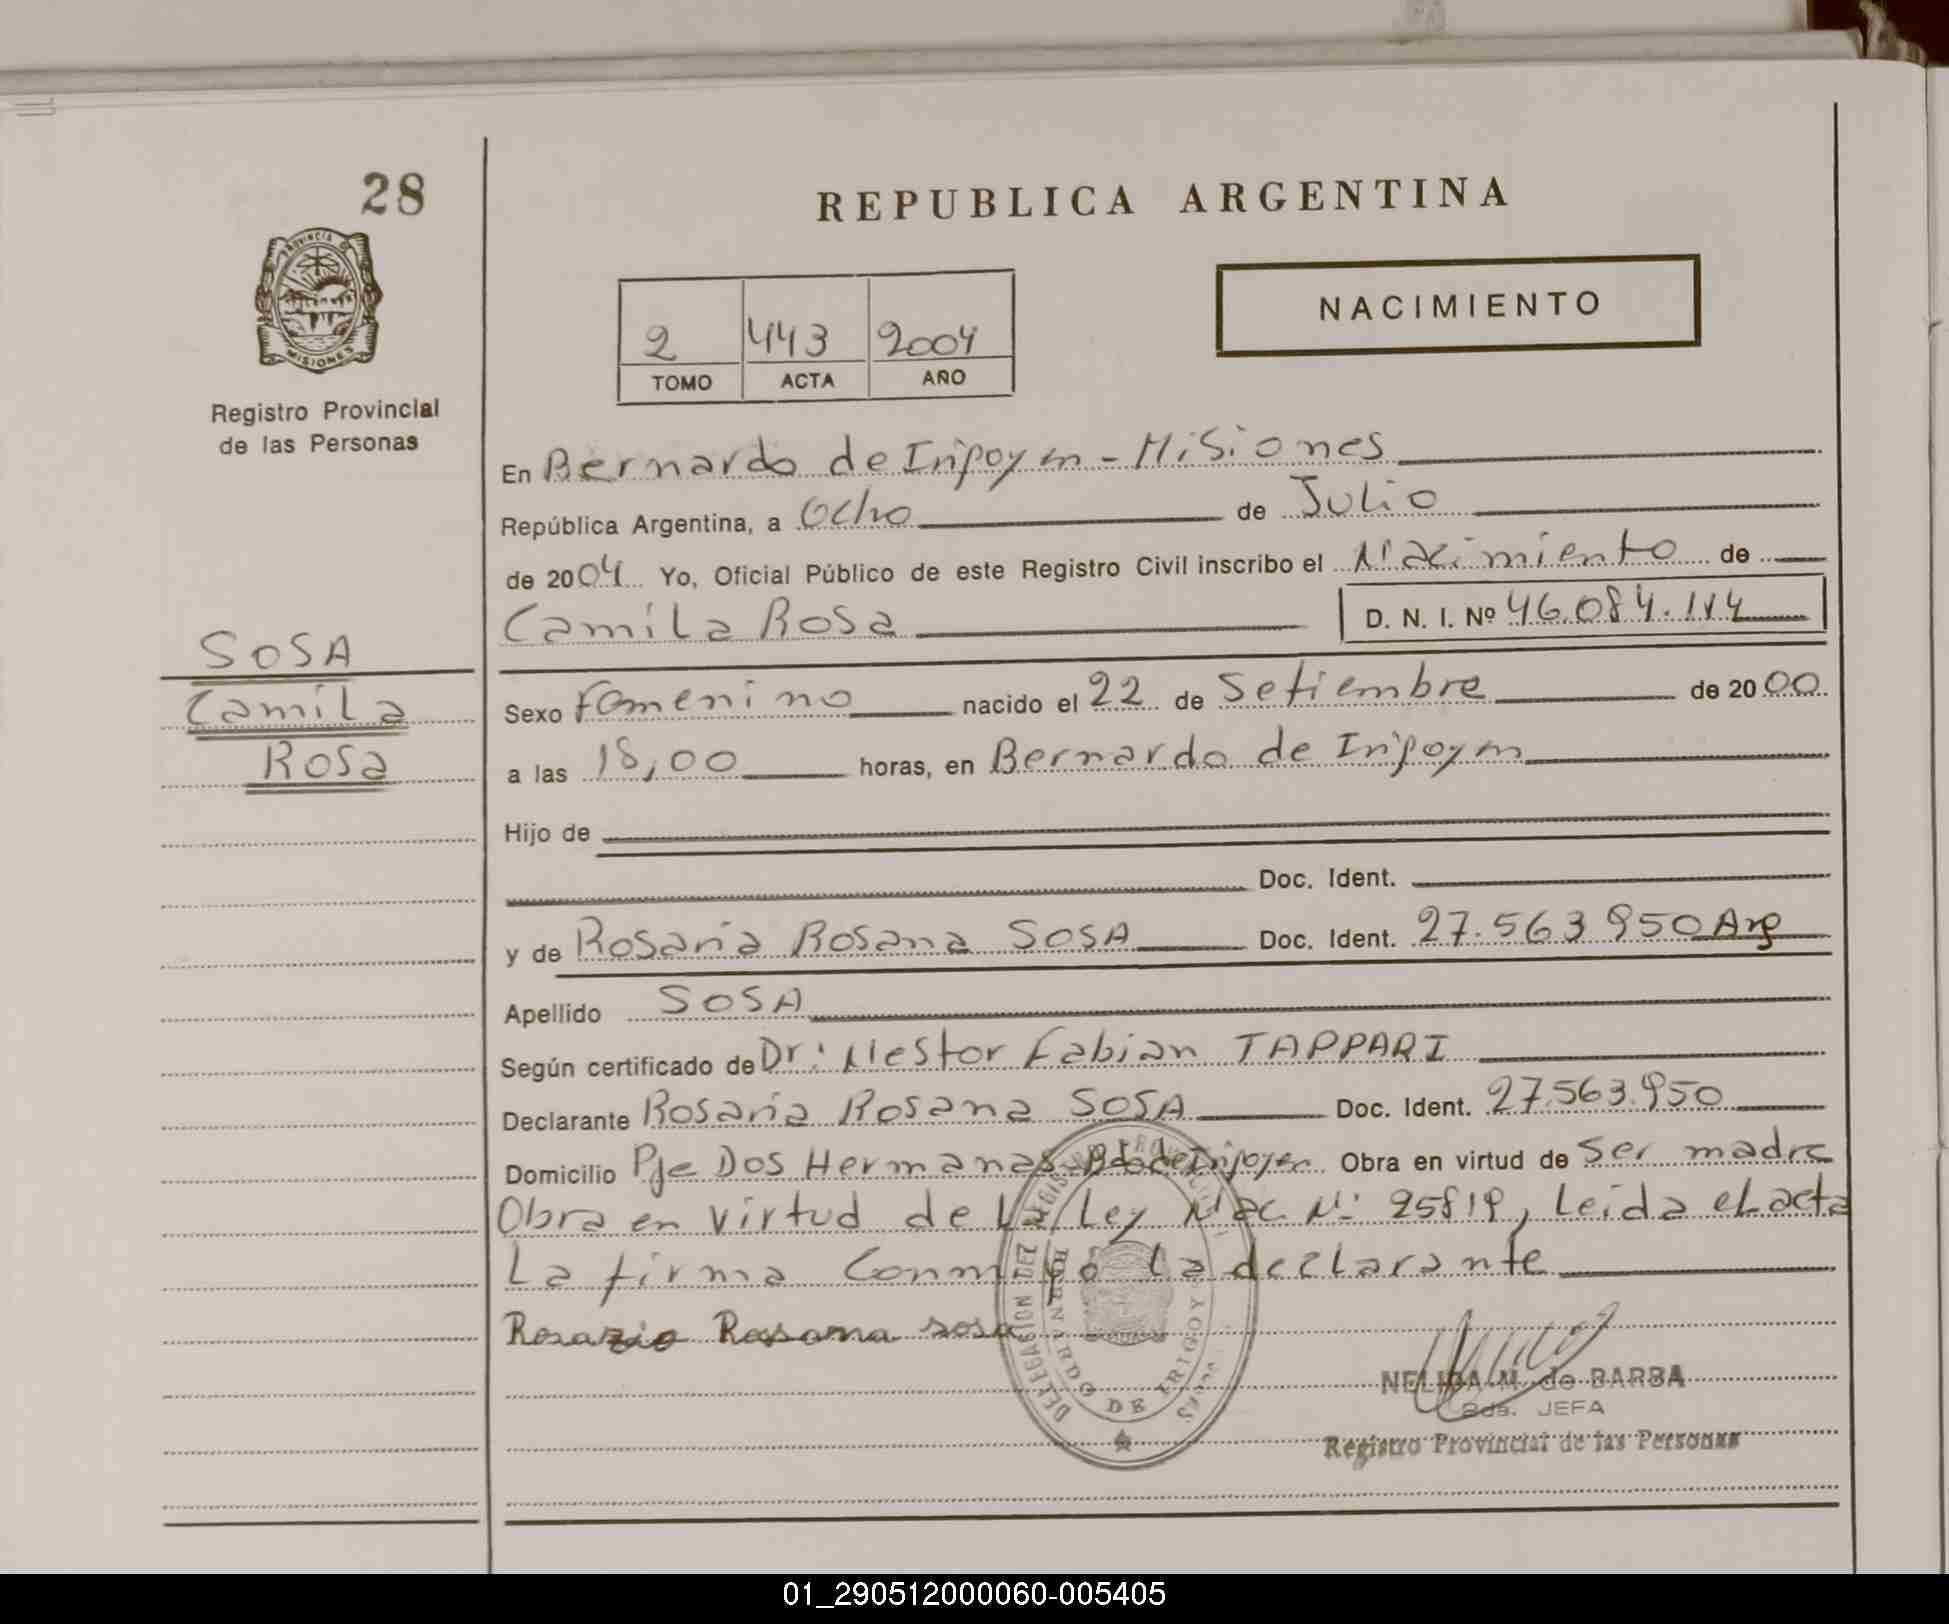 28
REPUBLICA ARGENTINA
PROVINCIA DE
MISIONES
Registro Provincial
de las Personas
NACIMIENTO
2 443 2004
TOMO ACTA AÑO
En Bernardo de Iripoyen - Misiones
República Argentina, a Ocho de Julio
de 2004 Yo, Oficial Público de este Registro Civil inscribo el Nacimiento de
Camila Rosa D. N. I. Nº 46.084.114
SOSA
Camila
Rosa
Sexo Femenino nacido el 22 de Setiembre de 2000
a las 18,00 horas, en Bernardo de Iripoyen
Hijo de
Doc. Ident.
y de Rosaria Rosana SOSA Doc. Ident. 27.563.950 Arg
Apellido SOSA
Según certificado de Dr: Nestor Fabian TAPPARI
Declarante Rosaria Rosana SOSA Doc. Ident. 27.563.950
Domicilio Pje Dos Hermanas - Bdo de Iripoyen Obra en virtud de Ser madre
Obra en virtud de la Ley Nac Nº 25819, Leida el acta
La firma Conmigo la declarante
Rosazio Rosana sosa
DELEGACION DEL REGISTRO PROVINCIAL
BERNARDO DE IRIGOYEN
NELIDA M. de BARBA
JEFA
Registro Provincial de las Personas
01_290512000060-005405